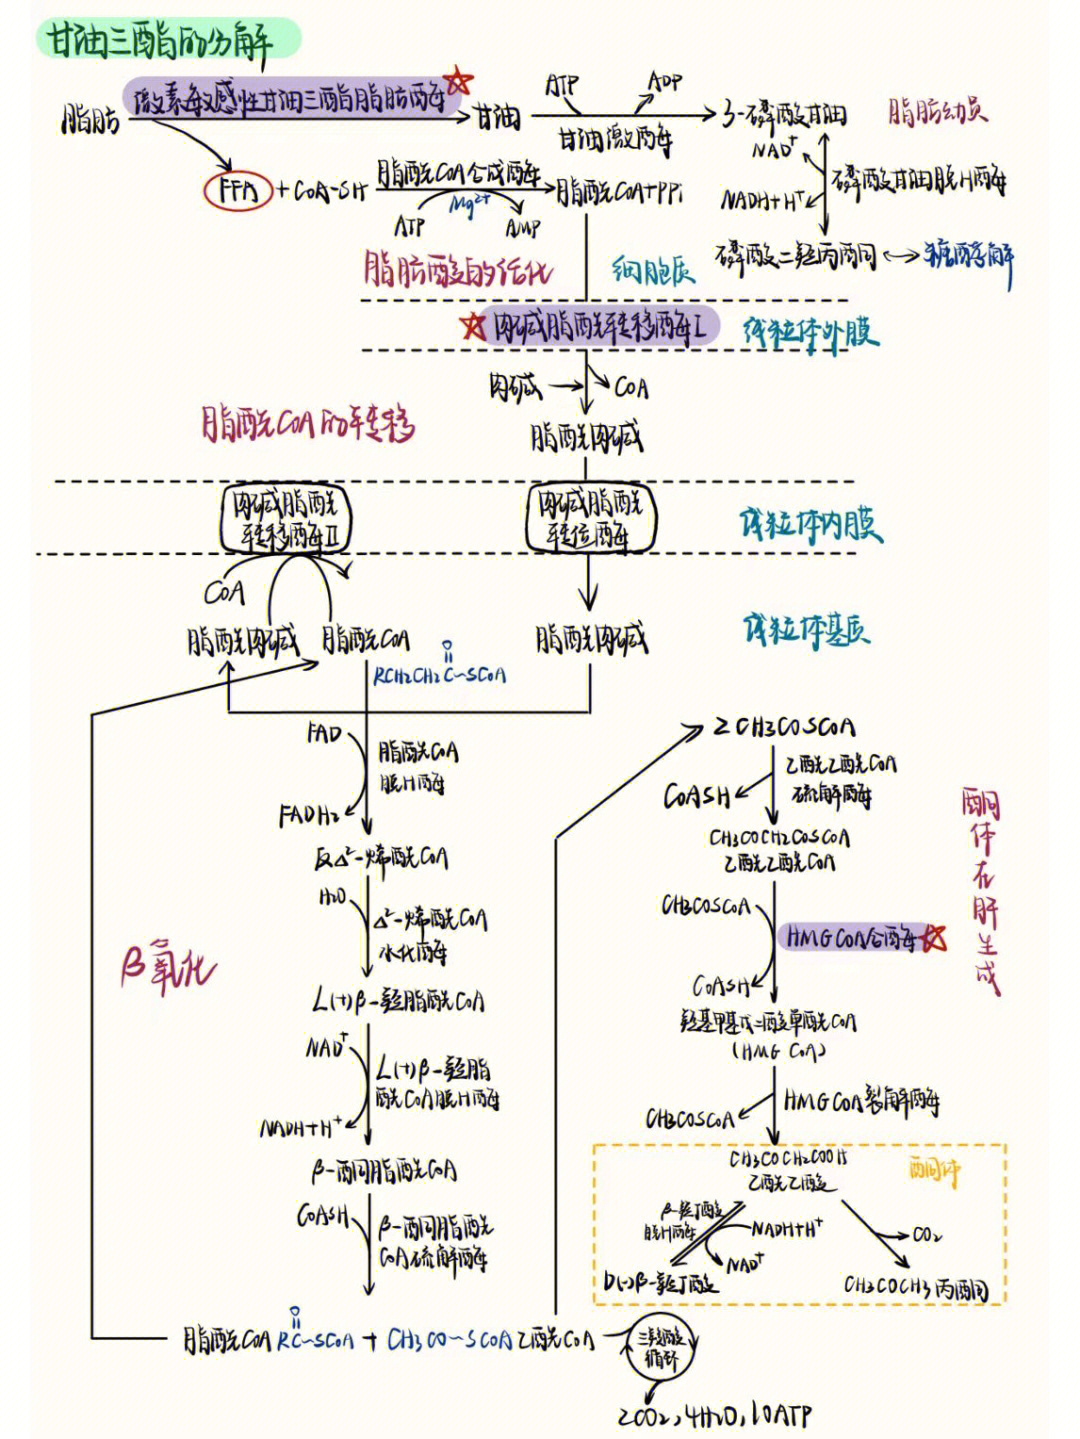 甘油三酯的分解
脂肪
激素敏感性甘油三酯脂肪酶
甘油
ATP
ADP
甘油激酶
3-磷酸甘油
脂肪动员
FFA
+ COA-SH
脂酰COA合成酶
Mg²⁺
ATP
AMP
脂酰COA+PPi
NAD⁺
NADH+H⁺
磷酸甘油脱H酶
磷酸二羟丙酮
糖酵解
脂肪酸的活化
细胞质
肉碱脂酰转移酶I
线粒体外膜
肉碱
COA
脂酰COA的转移
脂酰肉碱
肉碱脂酰
转移酶II
肉碱脂酰
转位酶
线粒体内膜
COA
脂酰肉碱
脂酰COA
脂酰肉碱
线粒体基质
O
RCH2CH2C~SCOA
FAD
脂酰COA
脱H酶
FADH2
反Δ²-烯酰COA
H2O
Δ²-烯酰COA
水化酶
β氧化
L(+)β-羟脂酰COA
NAD⁺
L(+)β-羟脂
酰COA脱H酶
NADH+H⁺
β-酮脂酰COA
COASH
β-酮脂酰
COA硫解酶
脂酰COA
O
RC~SCOA + CH3CO~SCOA
乙酰COA
三羧酸
循环
2CO2,4H2O,10ATP
2CH3COSCOA
乙酰乙酰COA
硫解酶
COASH
CH3COCH2COSCOA
乙酰乙酰COA
CH3COSCOA
HMGCOA合酶
COASH
羟基甲基戊二酸单酰COA
(HMG COA)
HMGCOA裂解酶
CH3COSCOA
酮体在肝生成
CH3COCH2COOH
乙酰乙酸
酮体
β-羟丁酸
脱H酶
NADH+H⁺
NAD⁺
D(-)β-羟丁酸
CO2
CH3COCH3丙酮